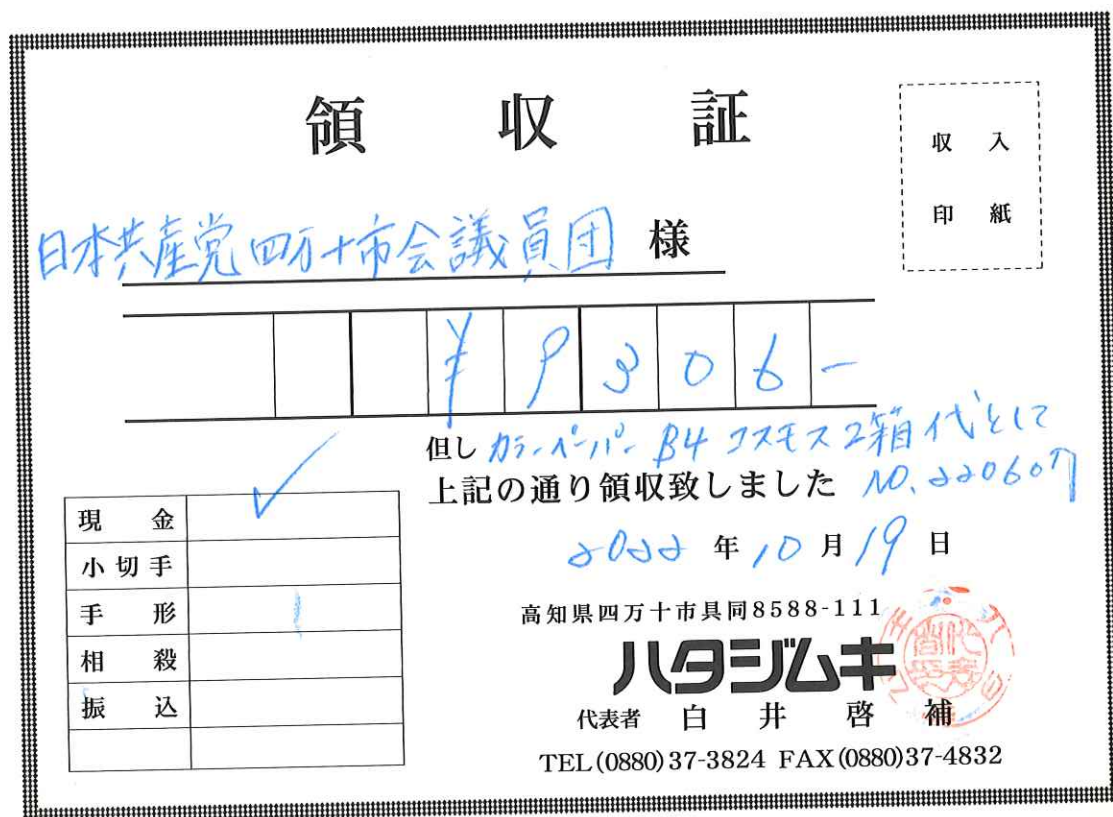 領収証
収入
印紙
日本共産党四万十市会議員団 様
¥9306-
但し カラーペーパー B4 コスモス 2箱代として
上記の通り領収致しました NO.220607
2022年10月19日
現金 ✓
小切手
手形
相殺
振込
高知県四万十市具同8588-111
ハタジムキ
代表者 白井啓補
TEL(0880)37-3824 FAX(0880)37-4832